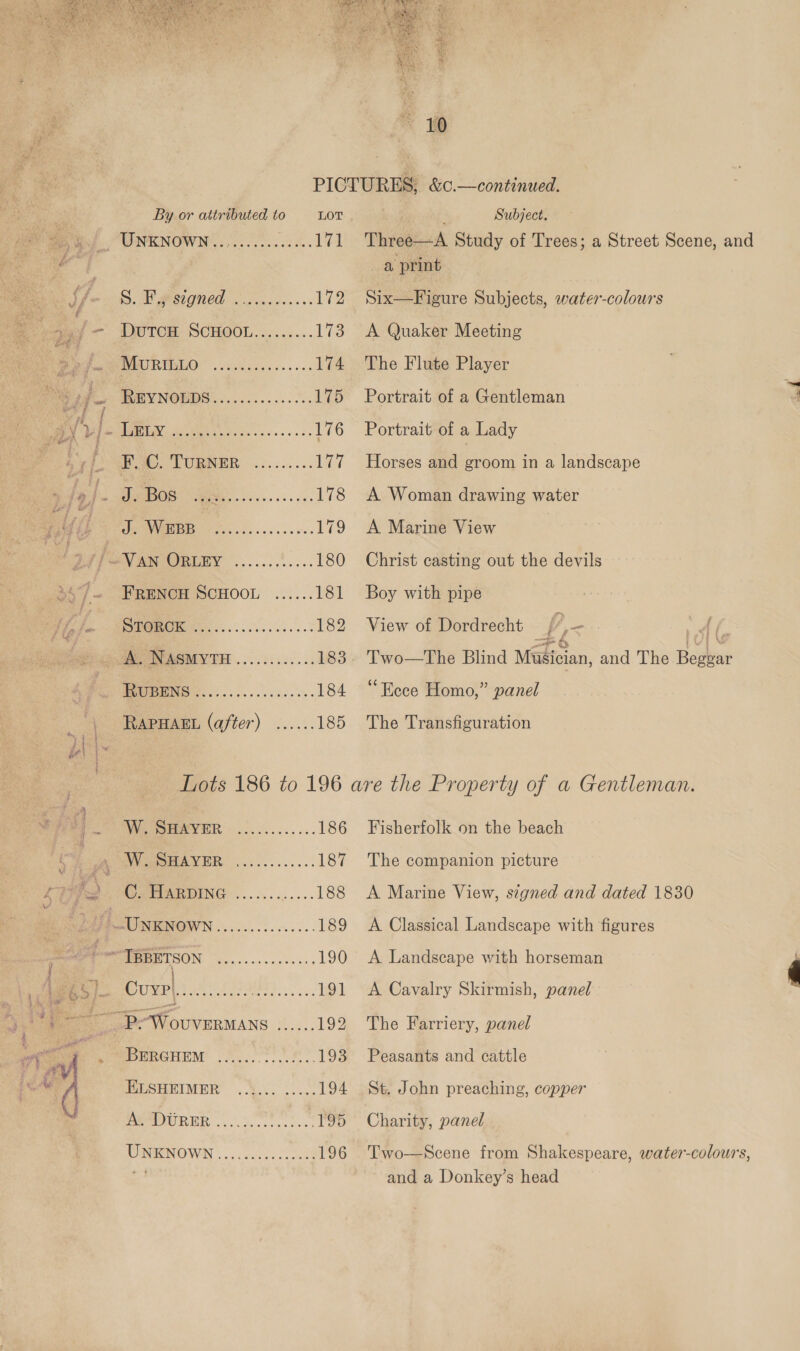 10
PICTURES, &c.—continued.
By or attributed to LOT Subject.
UNKNOWN ............... 171 Three—A Study of Trees; a Street Scene, and
a print
S. F., signed ............ 172 Six—Figure Subjects, water-colours
DUTCH SCHOOL......... 173 A Quaker Meeting
MURILLO ............... 174 The Flute Player
REYNOLDS ............... 175 Portrait of a Gentleman
LELY ..................... 176 Portrait of a Lady
F. C. TURNER ......... 177 Horses and groom in a landscape
J. BOS ............... 178 A Woman drawing water
J. WEBB ............... 179 A Marine View
VAN ORLEY ............ 180 Christ casting out the devils
FRENCH SCHOOL ...... 181 Boy with pipe
STORCK ............... 182 View of Dordrecht
A. NASMYTH ............ 183 Two—The Blind Musician, and The Beggar
RUBENS .................. 184 “Ecce Homo,” panel
RAPHAEL (after) ...... 185 The Transfiguration
Lots 186 to 196 are the Property of a Gentleman.
W. SHAYER ............ 186 Fisherfolk on the beach
W. SHAYER ............ 187 The companion picture
C. HARDING ............ 188 A Marine View, signed and dated 1830
UNKNOWN ............... 189 A Classical Landscape with figures
IBBETSON ............... 190 A Landscape with horseman
CUYP ..................... 191 A Cavalry Skirmish, panel
P. WOUVERMANS ...... 192 The Farriery, panel
BERGHEM ............... 193 Peasants and cattle
ELSHEIMER ............ 194 St. John preaching, copper
A. DÜRER ............... 195 Charity, panel
UNKNOWN ............... 196 Two—Scene from Shakespeare, water-colours,
and a Donkey’s head